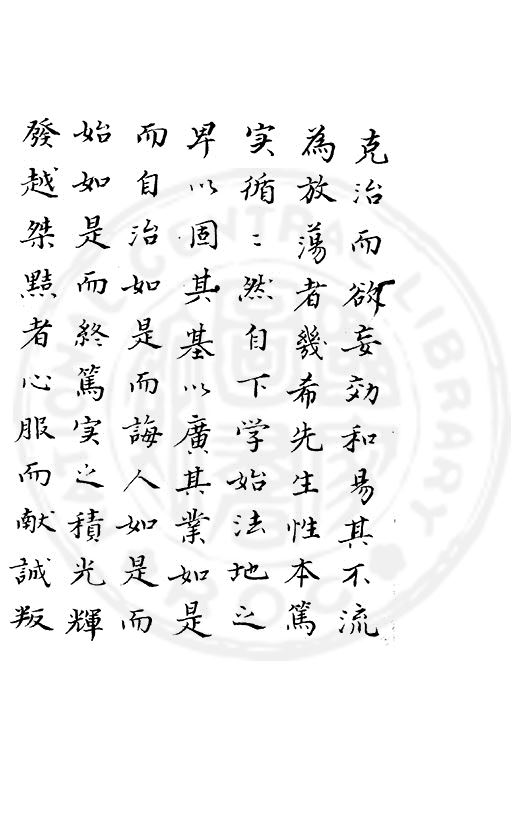 克治而欲妄効和易其不流
為放蕩者幾希先生性本篤
実循〻然自下学始法地之
卑以固其基以廣其業如是
而自治如是而誨人如是而
始如是而終篤実之積光輝
發越桀黠者心服而献誠叛